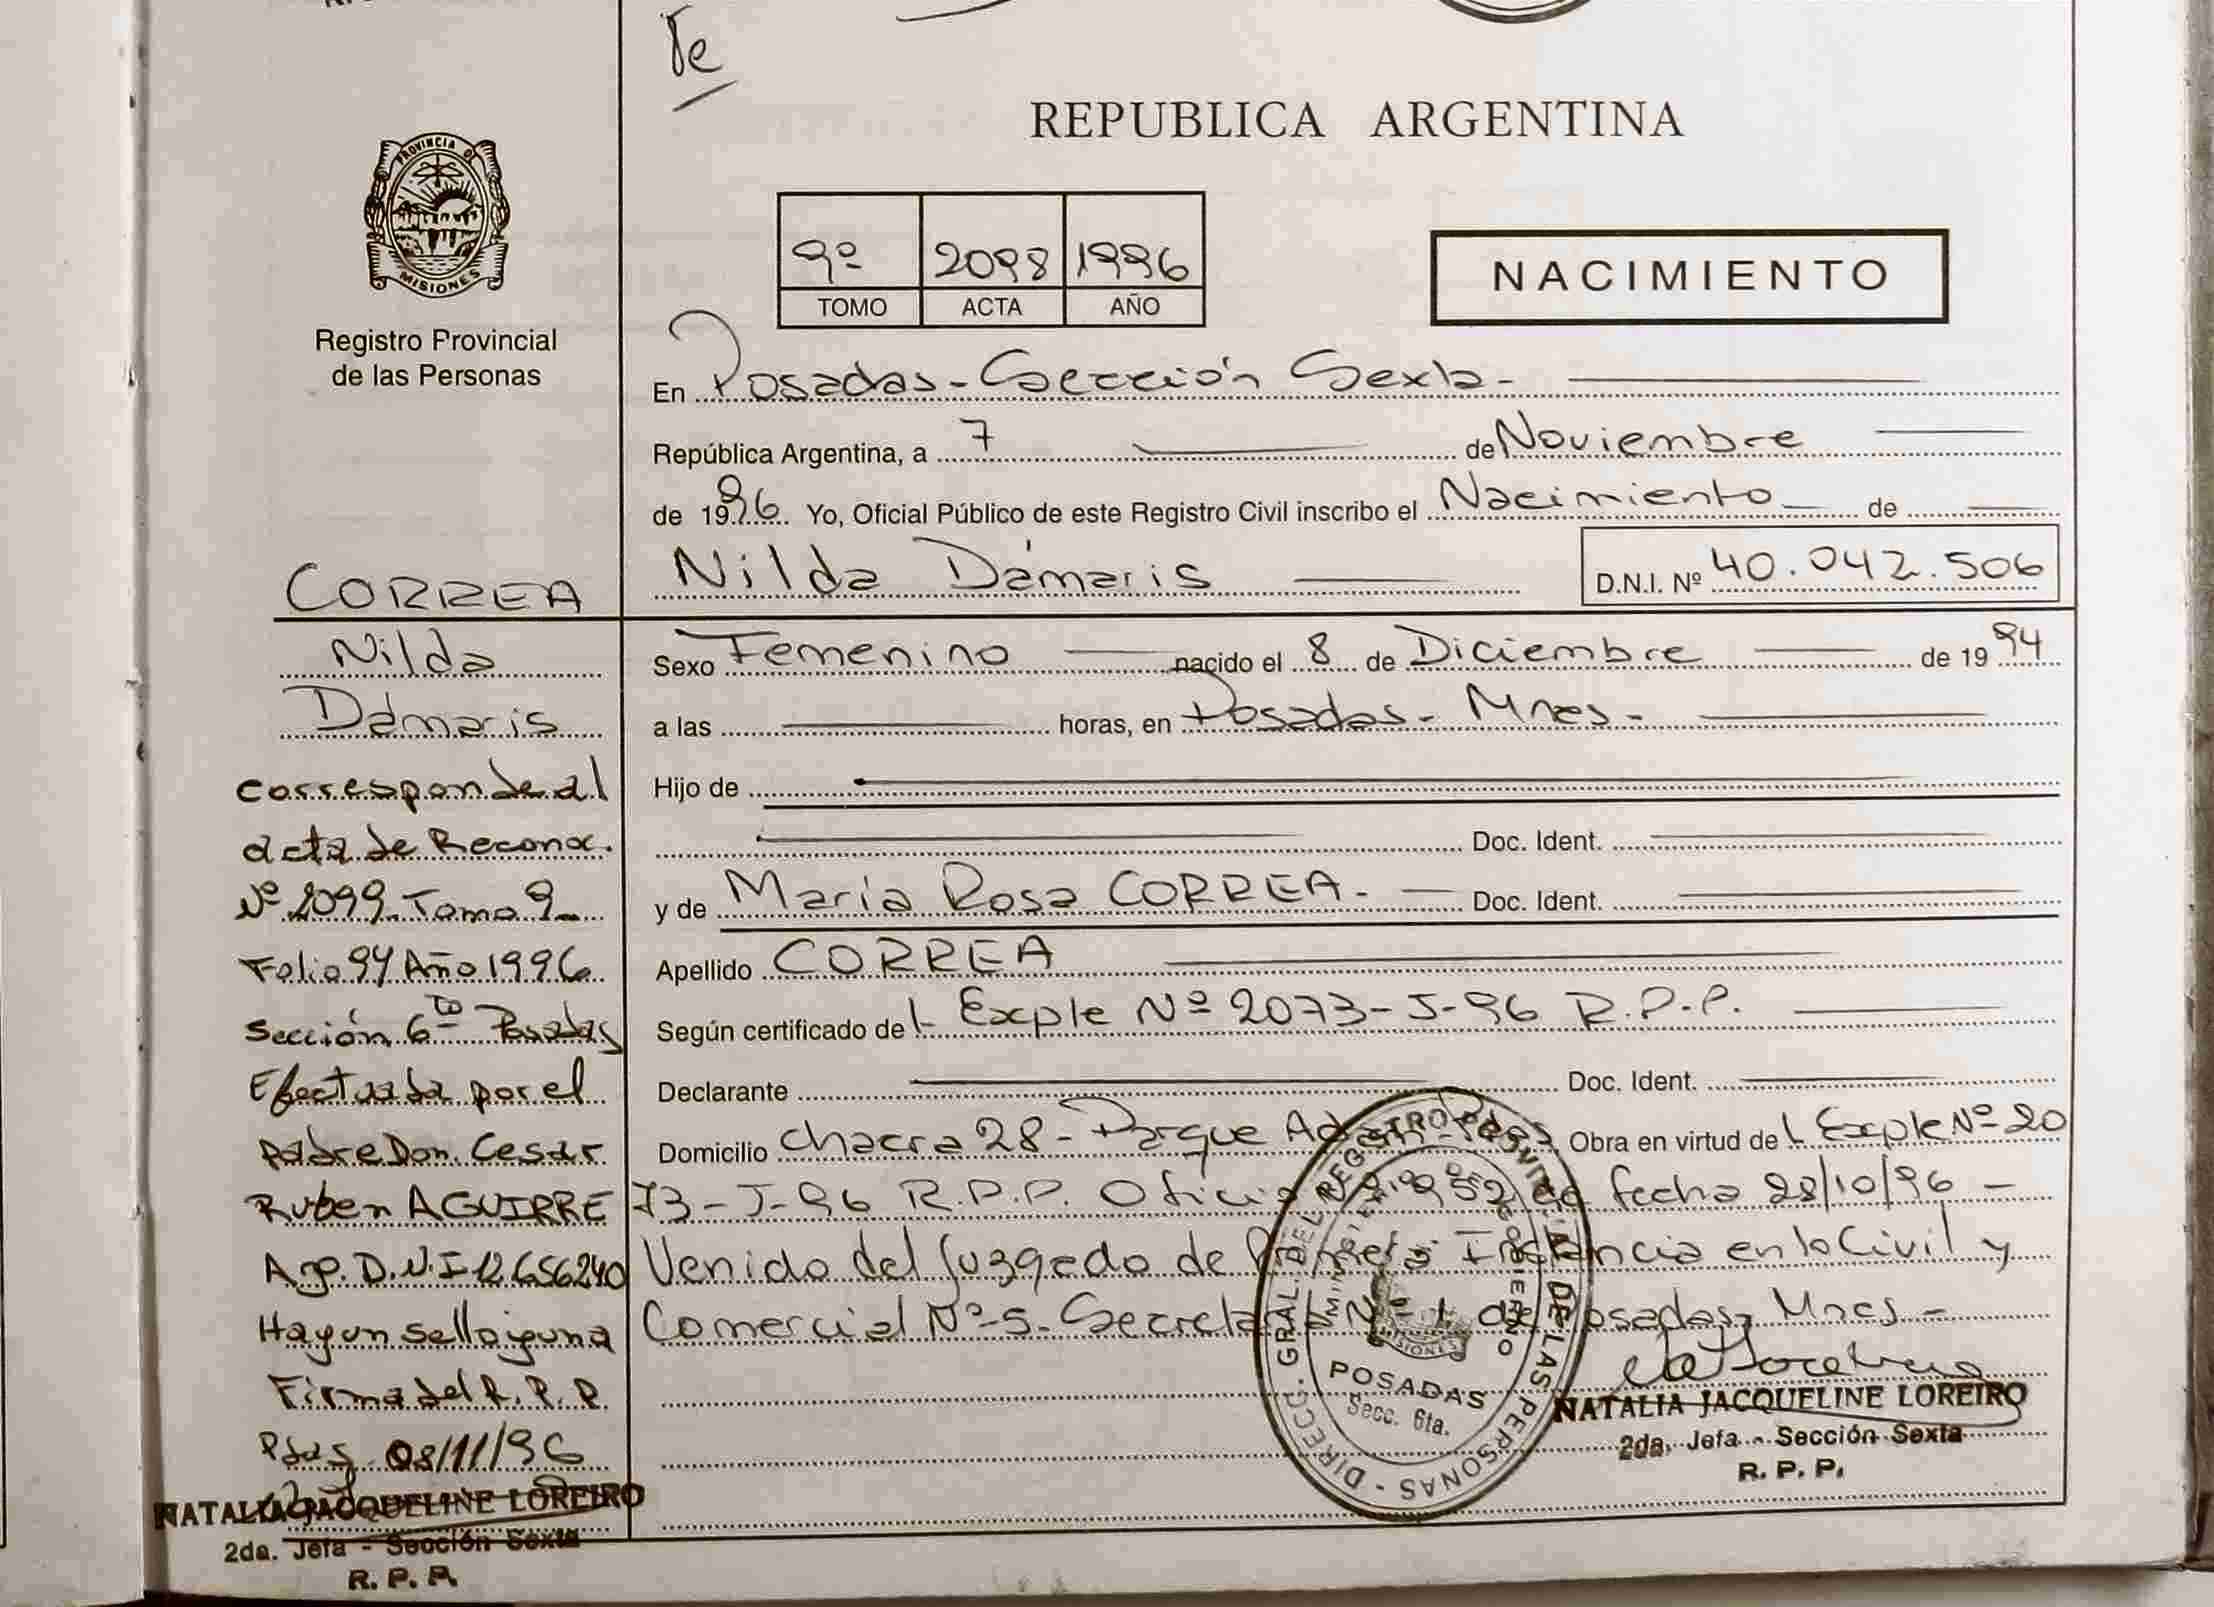 Te
REPUBLICA ARGENTINA
PROVINCIA DE
MISIONES
Registro Provincial
de las Personas
9º 2098 1996
TOMO ACTA AÑO
NACIMIENTO
En Posadas - Sección Sexta -
República Argentina, a 7 de Noviembre
de 1996. Yo, Oficial Público de este Registro Civil inscribo el Nacimiento de
Nilda Dámaris D.N.I. Nº 40.042.506
CORREA
Nilda
Dámaris
corresponde al
acta de Reconoc.
Nº 2099 Tomo 9
Folio 94 Año 1996
Sección 6ta Posadas
Efectuada por el
Padre Don Cesar
Ruben AGUIRRE
Arg. D.N.I 12656240
Hay un sello y una
Firma del R.P.P.
Psas 08/11/96
NATALIA JACQUELINE LOREIRO
2da. Jefa - Sección Sexta
R. P. P.
Sexo Femenino nacido el 8 de Diciembre de 1994
a las horas, en Posadas - Mnes -
Hijo de
Doc. Ident.
y de María Rosa CORREA. Doc. Ident.
Apellido CORREA
Según certificado de l- Exple Nº 2073-J-96 R.P.P.
Declarante Doc. Ident.
Domicilio chacra 28 - Parque Adam - Psas Obra en virtud de l Exple Nº 20
73-J-96 R.P.P. Oficio de fecha 28/10/96 -
Venido del Juzgado de Primera Instancia en lo Civil y
Comercial Nº 5 - Secretaría Nº 1 de Posadas, Mnes -
DIRECC. GRAL. DEL REGISTRO PROVINCIAL DE LAS PERSONAS
MINISTERIO DE GOBIERNO
MISIONES
POSADAS
Secc. 6ta.
NATALIA JACQUELINE LOREIRO
2da. Jefa - Sección Sexta
R. P. P.